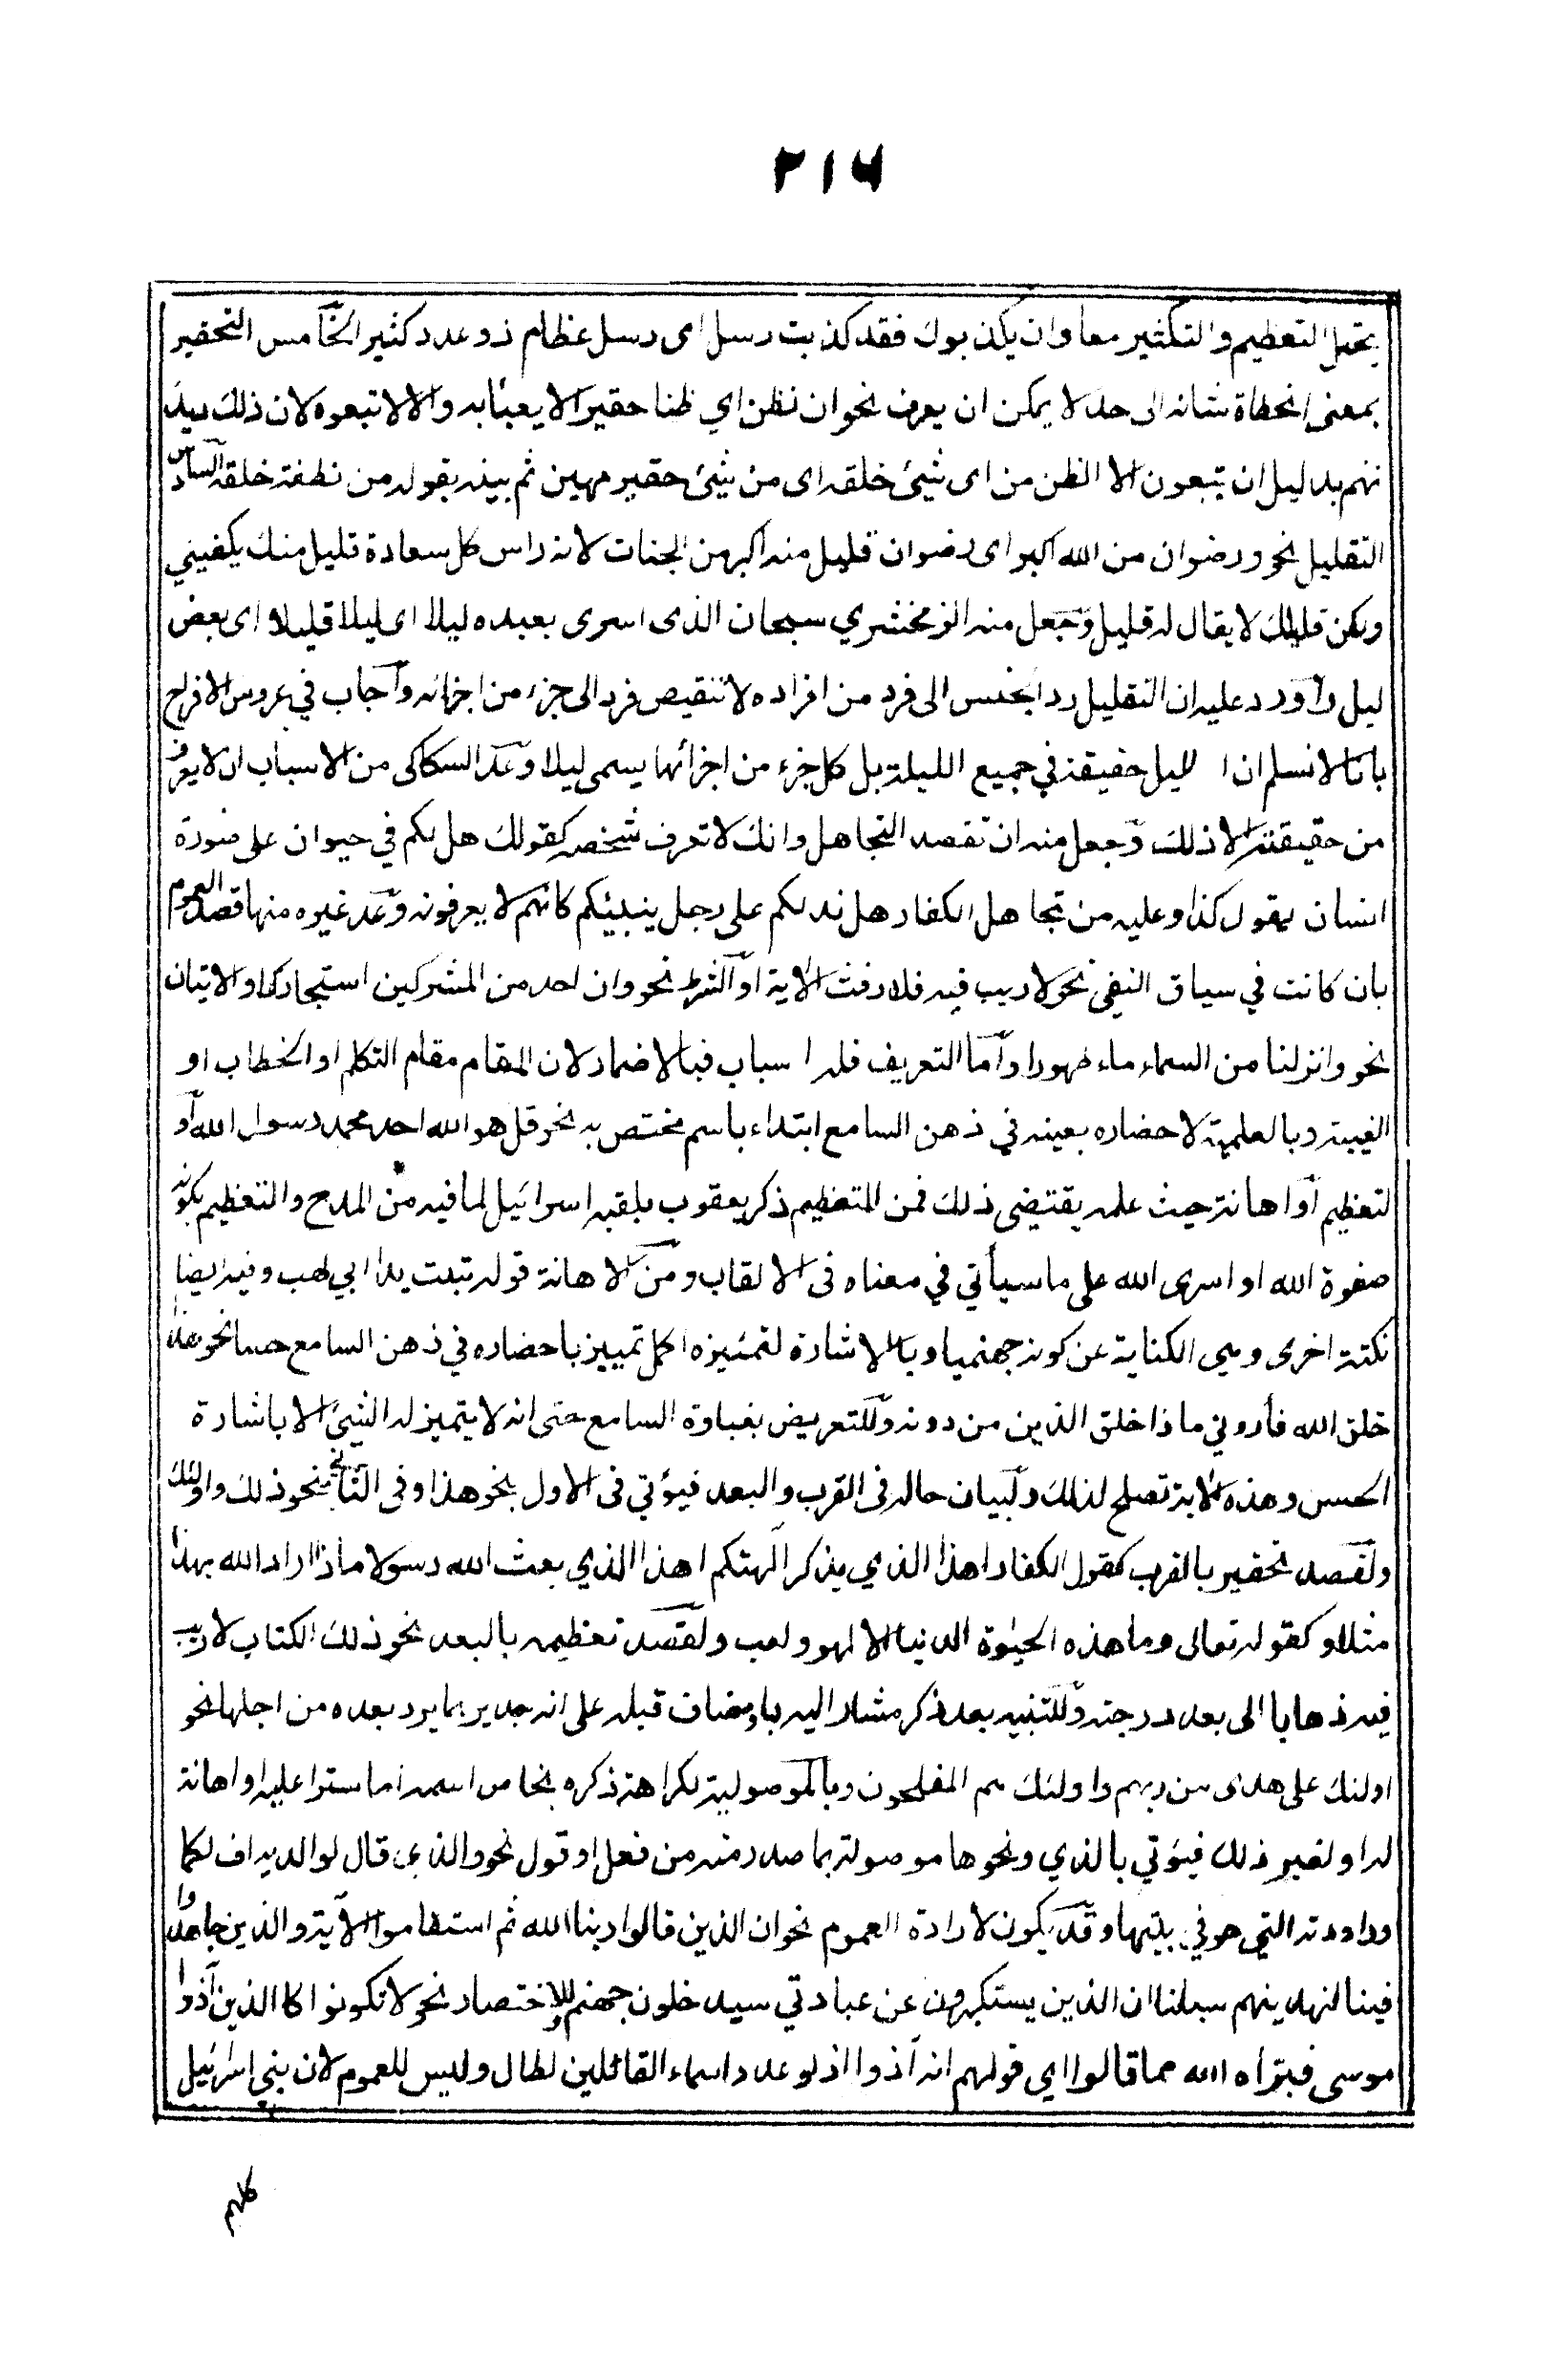 ٢١٦
يحتمل التعظيم والتكثير معا وان يكذبوك فقد كذبت رسل اى رسل عظام ذوعدد كثير الخامس التحقير
بمعنى انحطاة شانه الى حد لا يمكن ان يعرف نحو ان نظن اي ظنا حقيرا لا يعبأ به والا لا تبعوه لان ذلك ديد
نهم بدليل ان يتبعون الا الظن من اى شيئ خلقه اى من شيئ حقير مهين ثم بينه بقوله من نطفة خلقه السادس
التقليل نحو ورضوان من الله اكبر اى رضوان قليل منه اكبر من الجنات لانه راس كل سعادة قليل منك يكفيني
ولكن قليلك لا يقال له قليل وجعل منه الزمخشري سبحان الذى اسرى بعبده ليلا اى ليلا قليلا اى بعض
ليل واورد عليه ان التقليل رد الجنس الى فرد من افراده لا تنقيص فرد الى جزء من اجزائه واجاب في عروس الافراح
بانا لا نسلم ان الليل حقيقة في جميع الليلة بل كل جزء من اجزائها يسمى ليلا وعد السكاكى من الاسباب ان لا يعرف
من حقيقته الا ذلك وجعل منه ان تقصد التجاهل وانك لا تعرف شخصه كقولك هل لكم في حيوان على صورة
انسان يقول كذا وعليه من تجاهل الكفار هل ندلكم على رجل ينبئكم كانهم لا يعرفونه وعد غيره منها قصد العموم
بان كانت في سياق النفى نحو لا ريب فيه فلا رفث الاية او الشرط نحو وان احد من المشركين استجارك او الاتيان
نحو وانزلنا من السماء ماء طهورا واما التعريف فله اسباب فبالاضمار لان المقام مقام التكلم او الخطاب او
الغيبة وبالعلمية لاحضاره بعينه في ذهن السامع ابتداء باسم مختص به نحو قل هو الله احد محمد رسول الله او
لتعظيم او اهانة حيث علمه يقتضى ذلك فمن التعظيم ذكر يعقوب بلقبه اسرائيل لما فيه من المدح والتعظيم بكونه
صفوة الله او اسرى الله على ما سيأتي في معناه فى الالقاب ومن الاهانة قوله تبت يدا ابي لهب وفيه ايضا
نكتة اخرى وهى الكناية عن كونه جهنميا وبالاشارة لتمئيزه اكمل تمييز باحضاره في ذهن السامع حسا نحو هذا
خلق الله فأروني ماذا خلق الذين من دونه وللتعريض بغباوة السامع حتى انه لا يتميز له الشيئ الا باشارة
الحسن وهذه الاية تصلح لذلك ولبيان حاله فى القرب والبعد فيؤتي فى الاول بنحو هذا وفى الثاني بنحو ذلك واولئك
ولقصد تحقير بالقرب كقول الكفار اهذا الذي يذكر الهتكم اهذا الذي بعث الله رسولا ماذا اراد الله بهذا
مثلا وكقوله تعالى وما هذه الحيوة الدنيا الا لهو ولعب ولقصد تعظيمه بالبعد نحو ذلك الكتاب لا ريب
فيه ذهابا الى بعد درجته وللتنبيه بعد ذكر مشار اليه باوصاف قبله على انه جدير بما يرد بعده من اجلها نحو
اولئك على هدى من ربهم واولئك هم المفلحون وبالموصولية لكراهة ذكره بخاص اسمه اما سترا عليه او اهانة
له او لغير ذلك فيؤتي بالذي ونحوها موصولة بما صدر منه من فعل او قول نحو والذى قال لوالديه اف لكما
وراودته التي هو في بيتها وقد يكون لارادة العموم نحو ان الذين قالوا ربنا الله ثم استقاموا الآية والذين جاهدوا
فينا لنهدينهم سبلنا ان الذين يستكبرون عن عبادتي سيدخلون جهنم وللاختصار نحو لا تكونوا كا الذين آذوا
موسى فبرّاه الله مما قالوا اي قولهم انه آذوا اذ لو عدد اسماء القائلين لطال وليس للعموم لان بني اسرائيل
كلهم